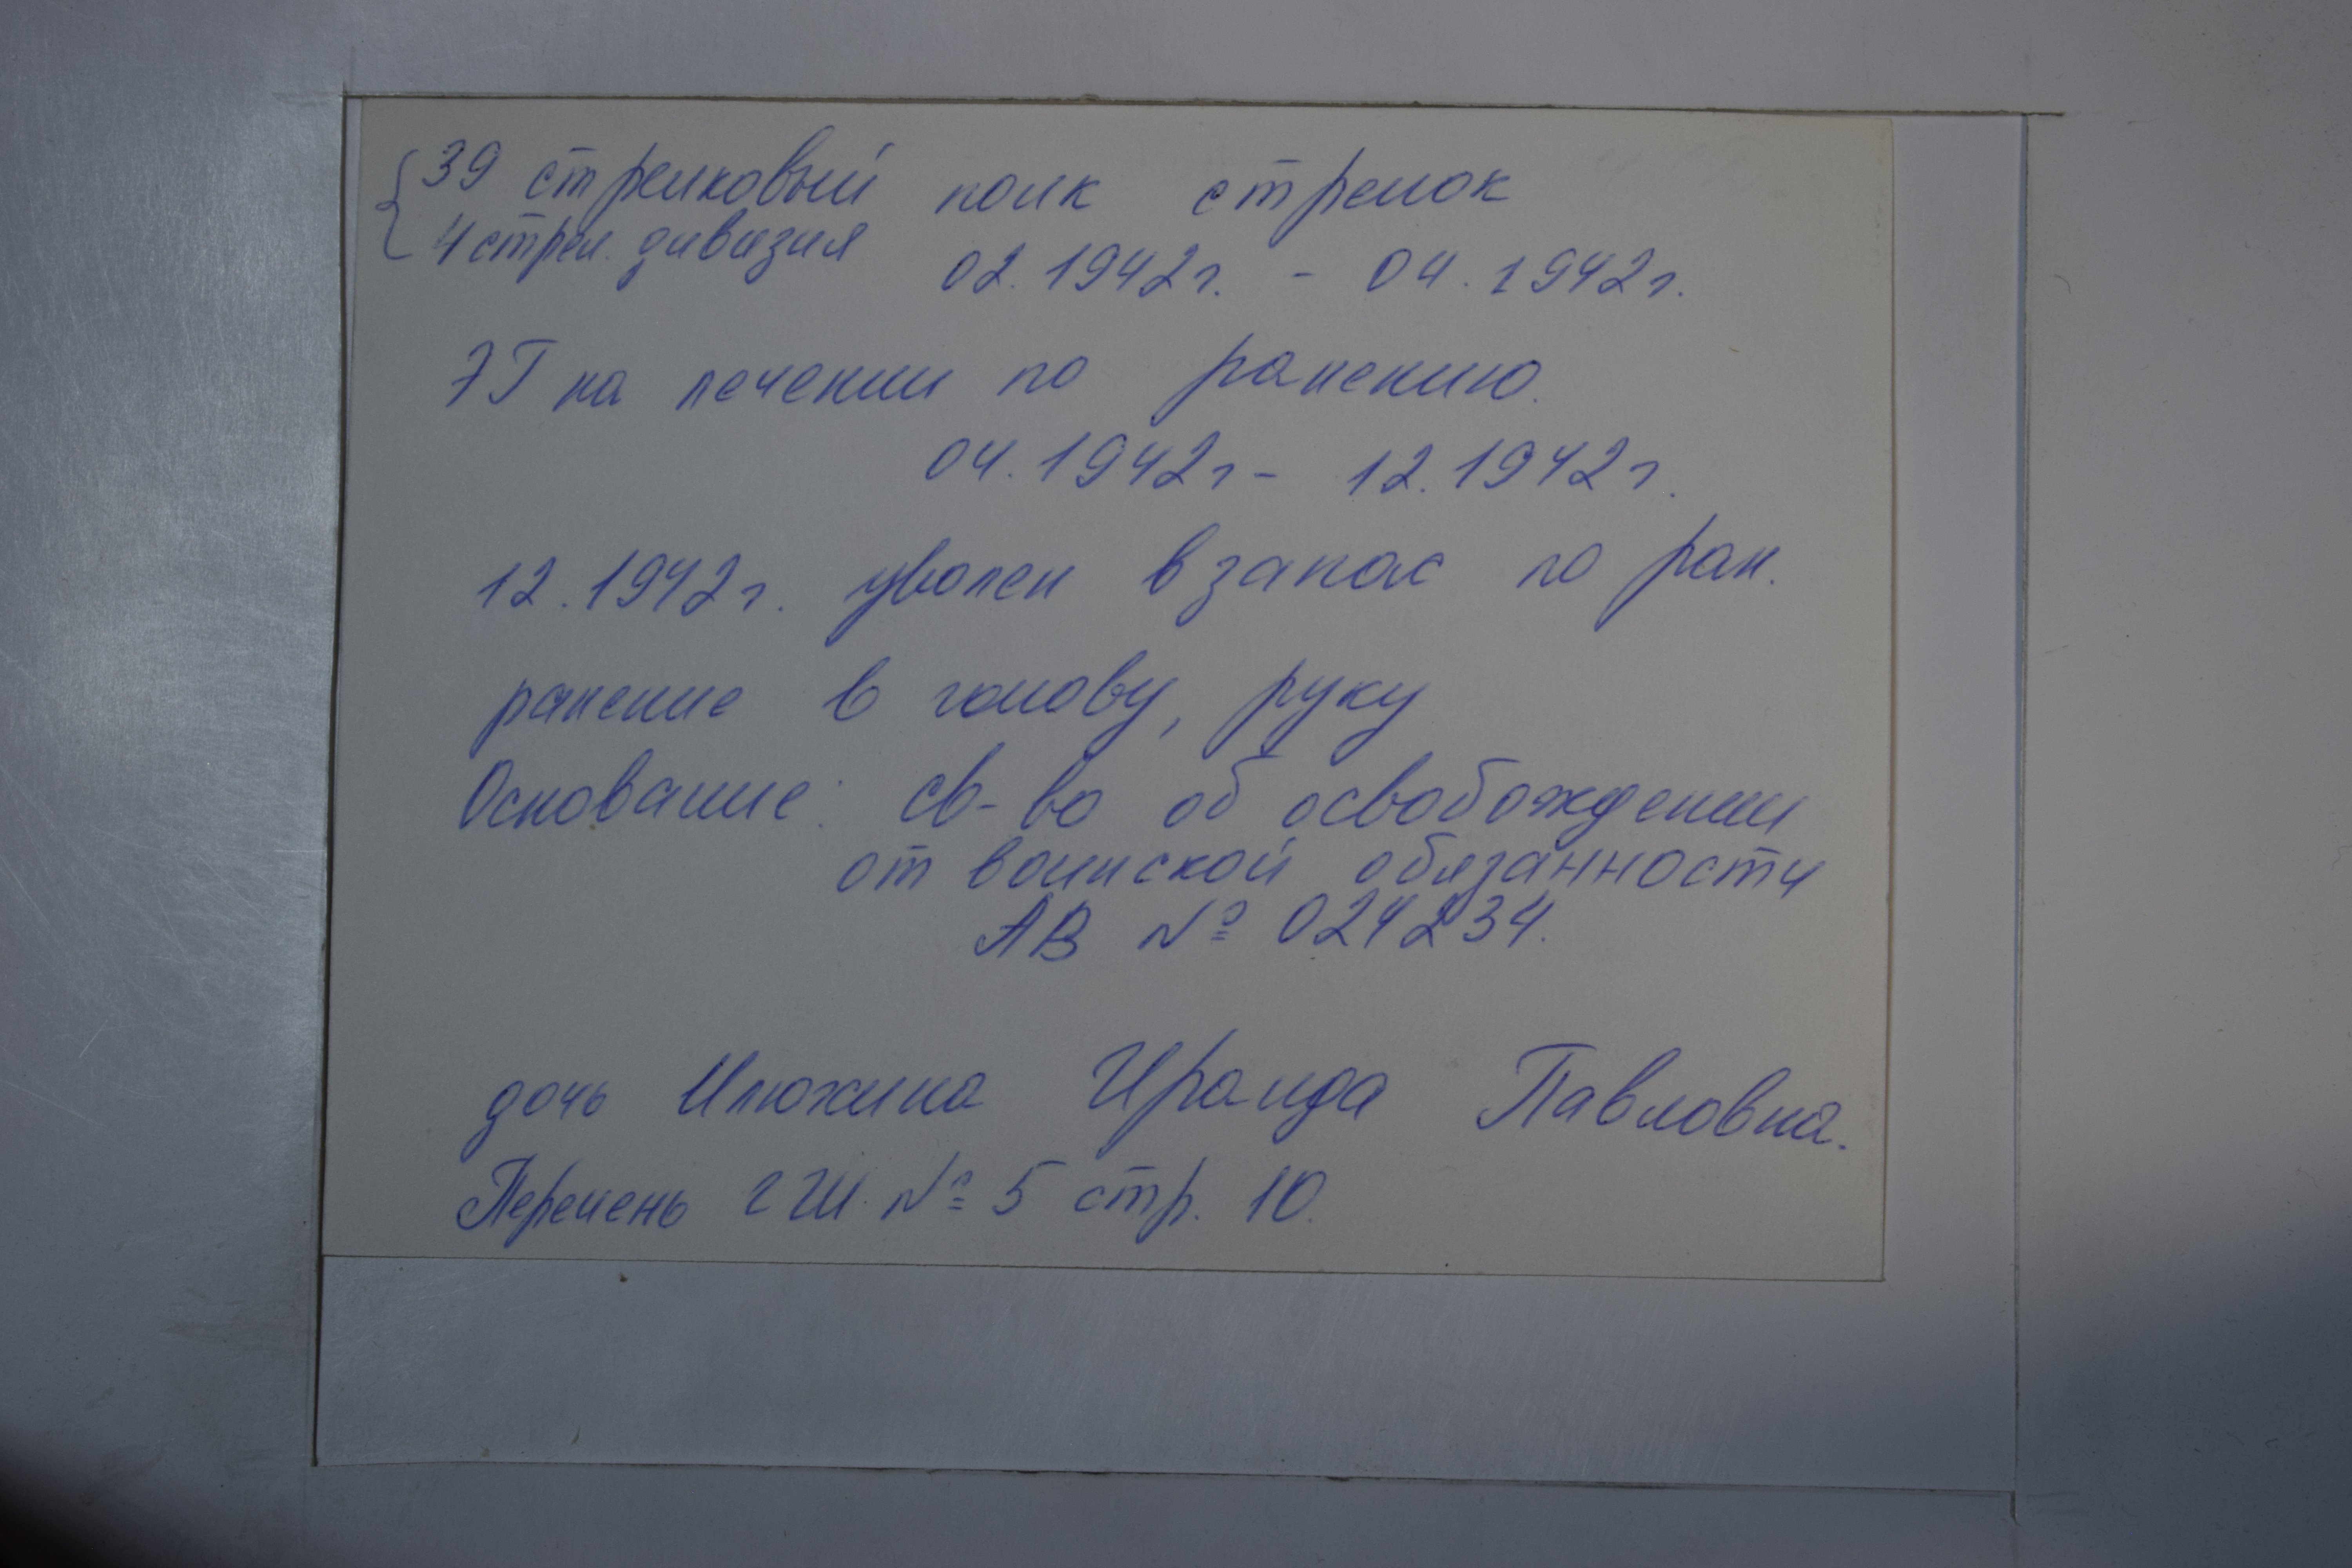 39 стрелковый полк стрелок
4 стрел. дивизия 02.1942г. - 04.1942г.
ЭГ на лечении по ранению.
04.1942г - 12.1942г.
12.1942г. уволен в запас по ран.
ранение в голову, руку
Основание: св-во об освобождении
от воинской обязанности
АВ № 024234.
дочь Илюхина Ираида Павловна.
Перечень ГШ. № 5 стр. 10.